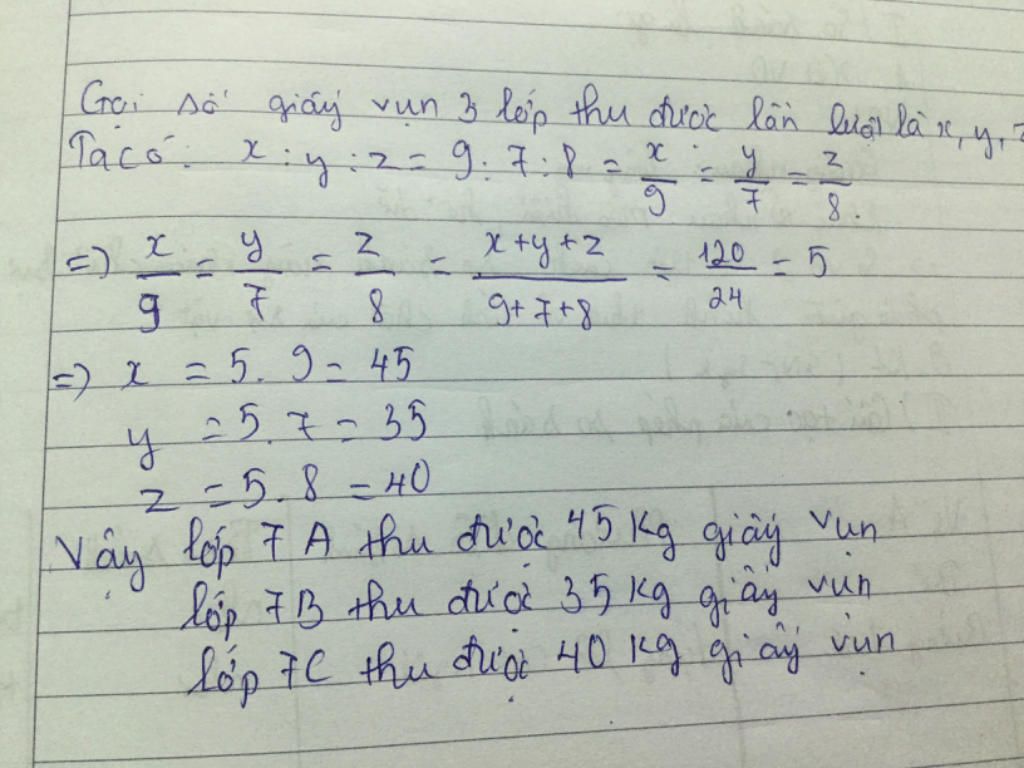 Gọi số giấy vụn 3 lớp thu được lần lượt là x, y, z
Ta có: x : y : z = 9 : 7 : 8 = x/9 = y/7 = z/8.
=> x/9 = y/7 = z/8 = x+y+z/9+7+8 = 120/24 = 5
=> x = 5. 9 = 45
y = 5. 7 = 35
z = 5. 8 = 40
Vậy lớp 7A thu được 45 kg giấy vụn
lớp 7B thu được 35 kg giấy vụn
lớp 7C thu được 40 kg giấy vụn